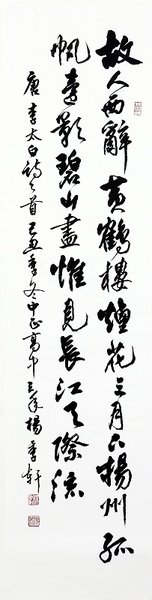 故人西辭黃鶴樓煙花三月下揚州孤
帆遠影碧山盡惟見長江天際流
唐李太白詩一首己丑季冬中正高中三年楊季軒